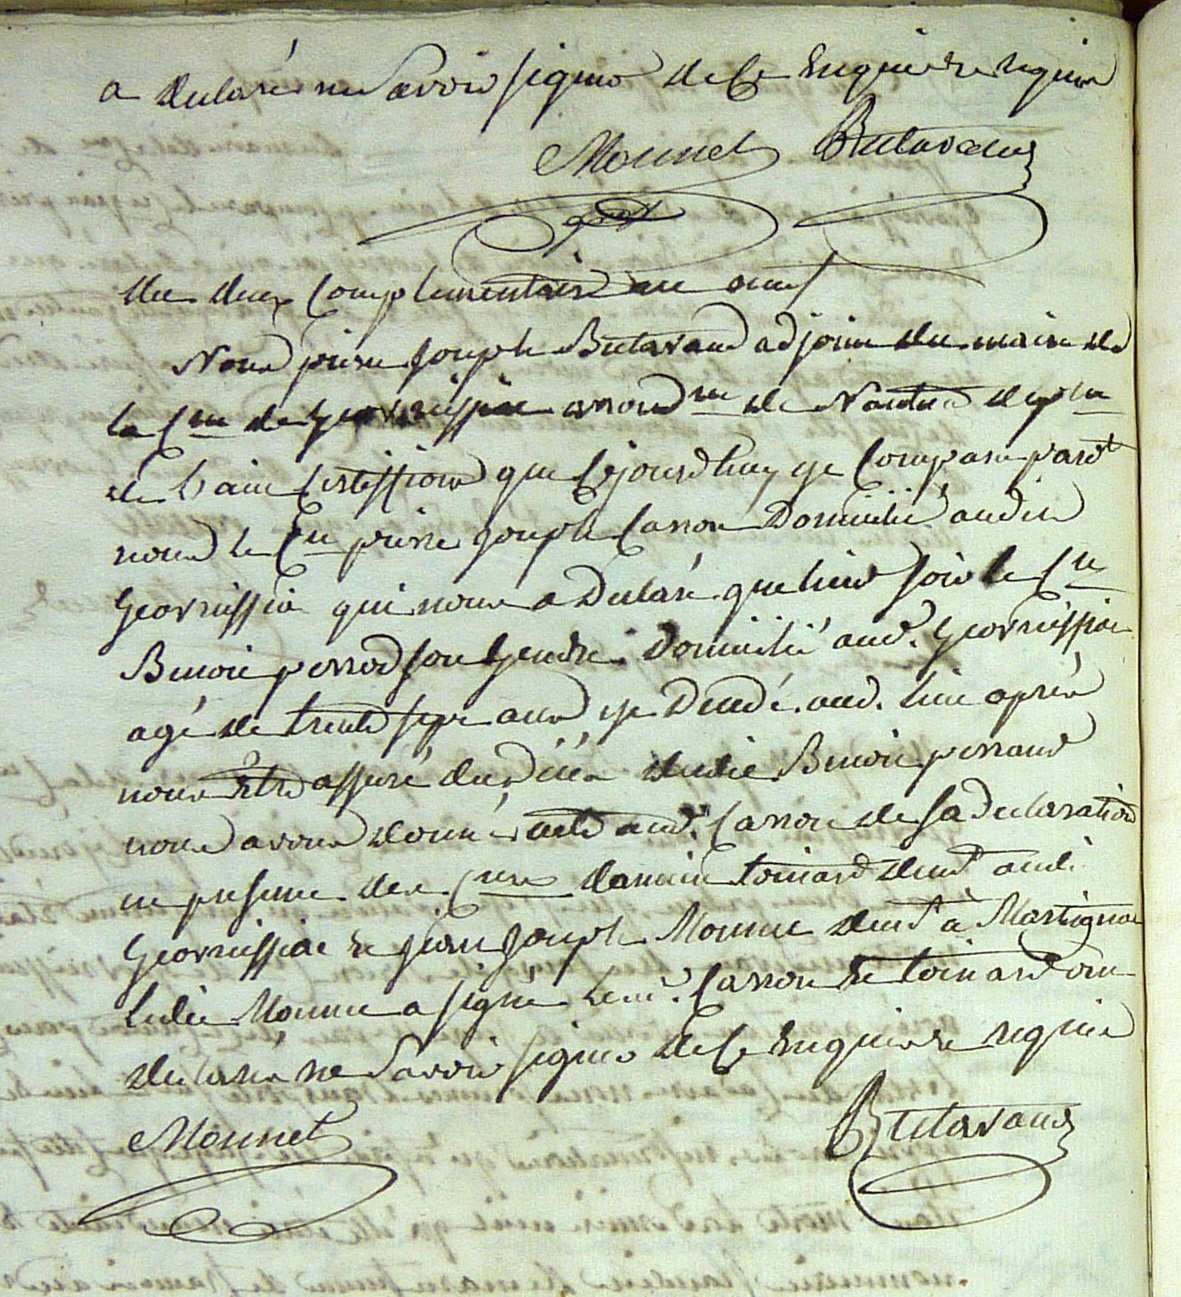 a declaré ne Savoir signer de Ce Enquis et requis
Monnet Butavand
du deux Complementaire an neuf
Nous pierre Joseph Butavand adjoint du maire de
la Cne de Geovreissiat arrondme de Nantua depme
de l'ain Certiffions que Cejourdhuy est Comparu pardt
nous le Cen pierre Joseph Carron Domicilié audit
Geovreissia qui nous a Declaré que hier soir le Cen
Benoit perrod son Gendre Domicilié aud. Geovreissia
agé de trente sept ans est Decedé aud. lieu après
nous être assuré du décès dudit Benoit perraud
nous avons donné acte aud. Carron de sa declaration
en presence des Cens toinard demt audit
Geovreissiat et Jean Joseph Monnet demt à Martignat
Ledit Monnet a signé led. Carron et toinard ont
declaré ne Savoir signer de Ce Enquis et requis
Monnet Butavand